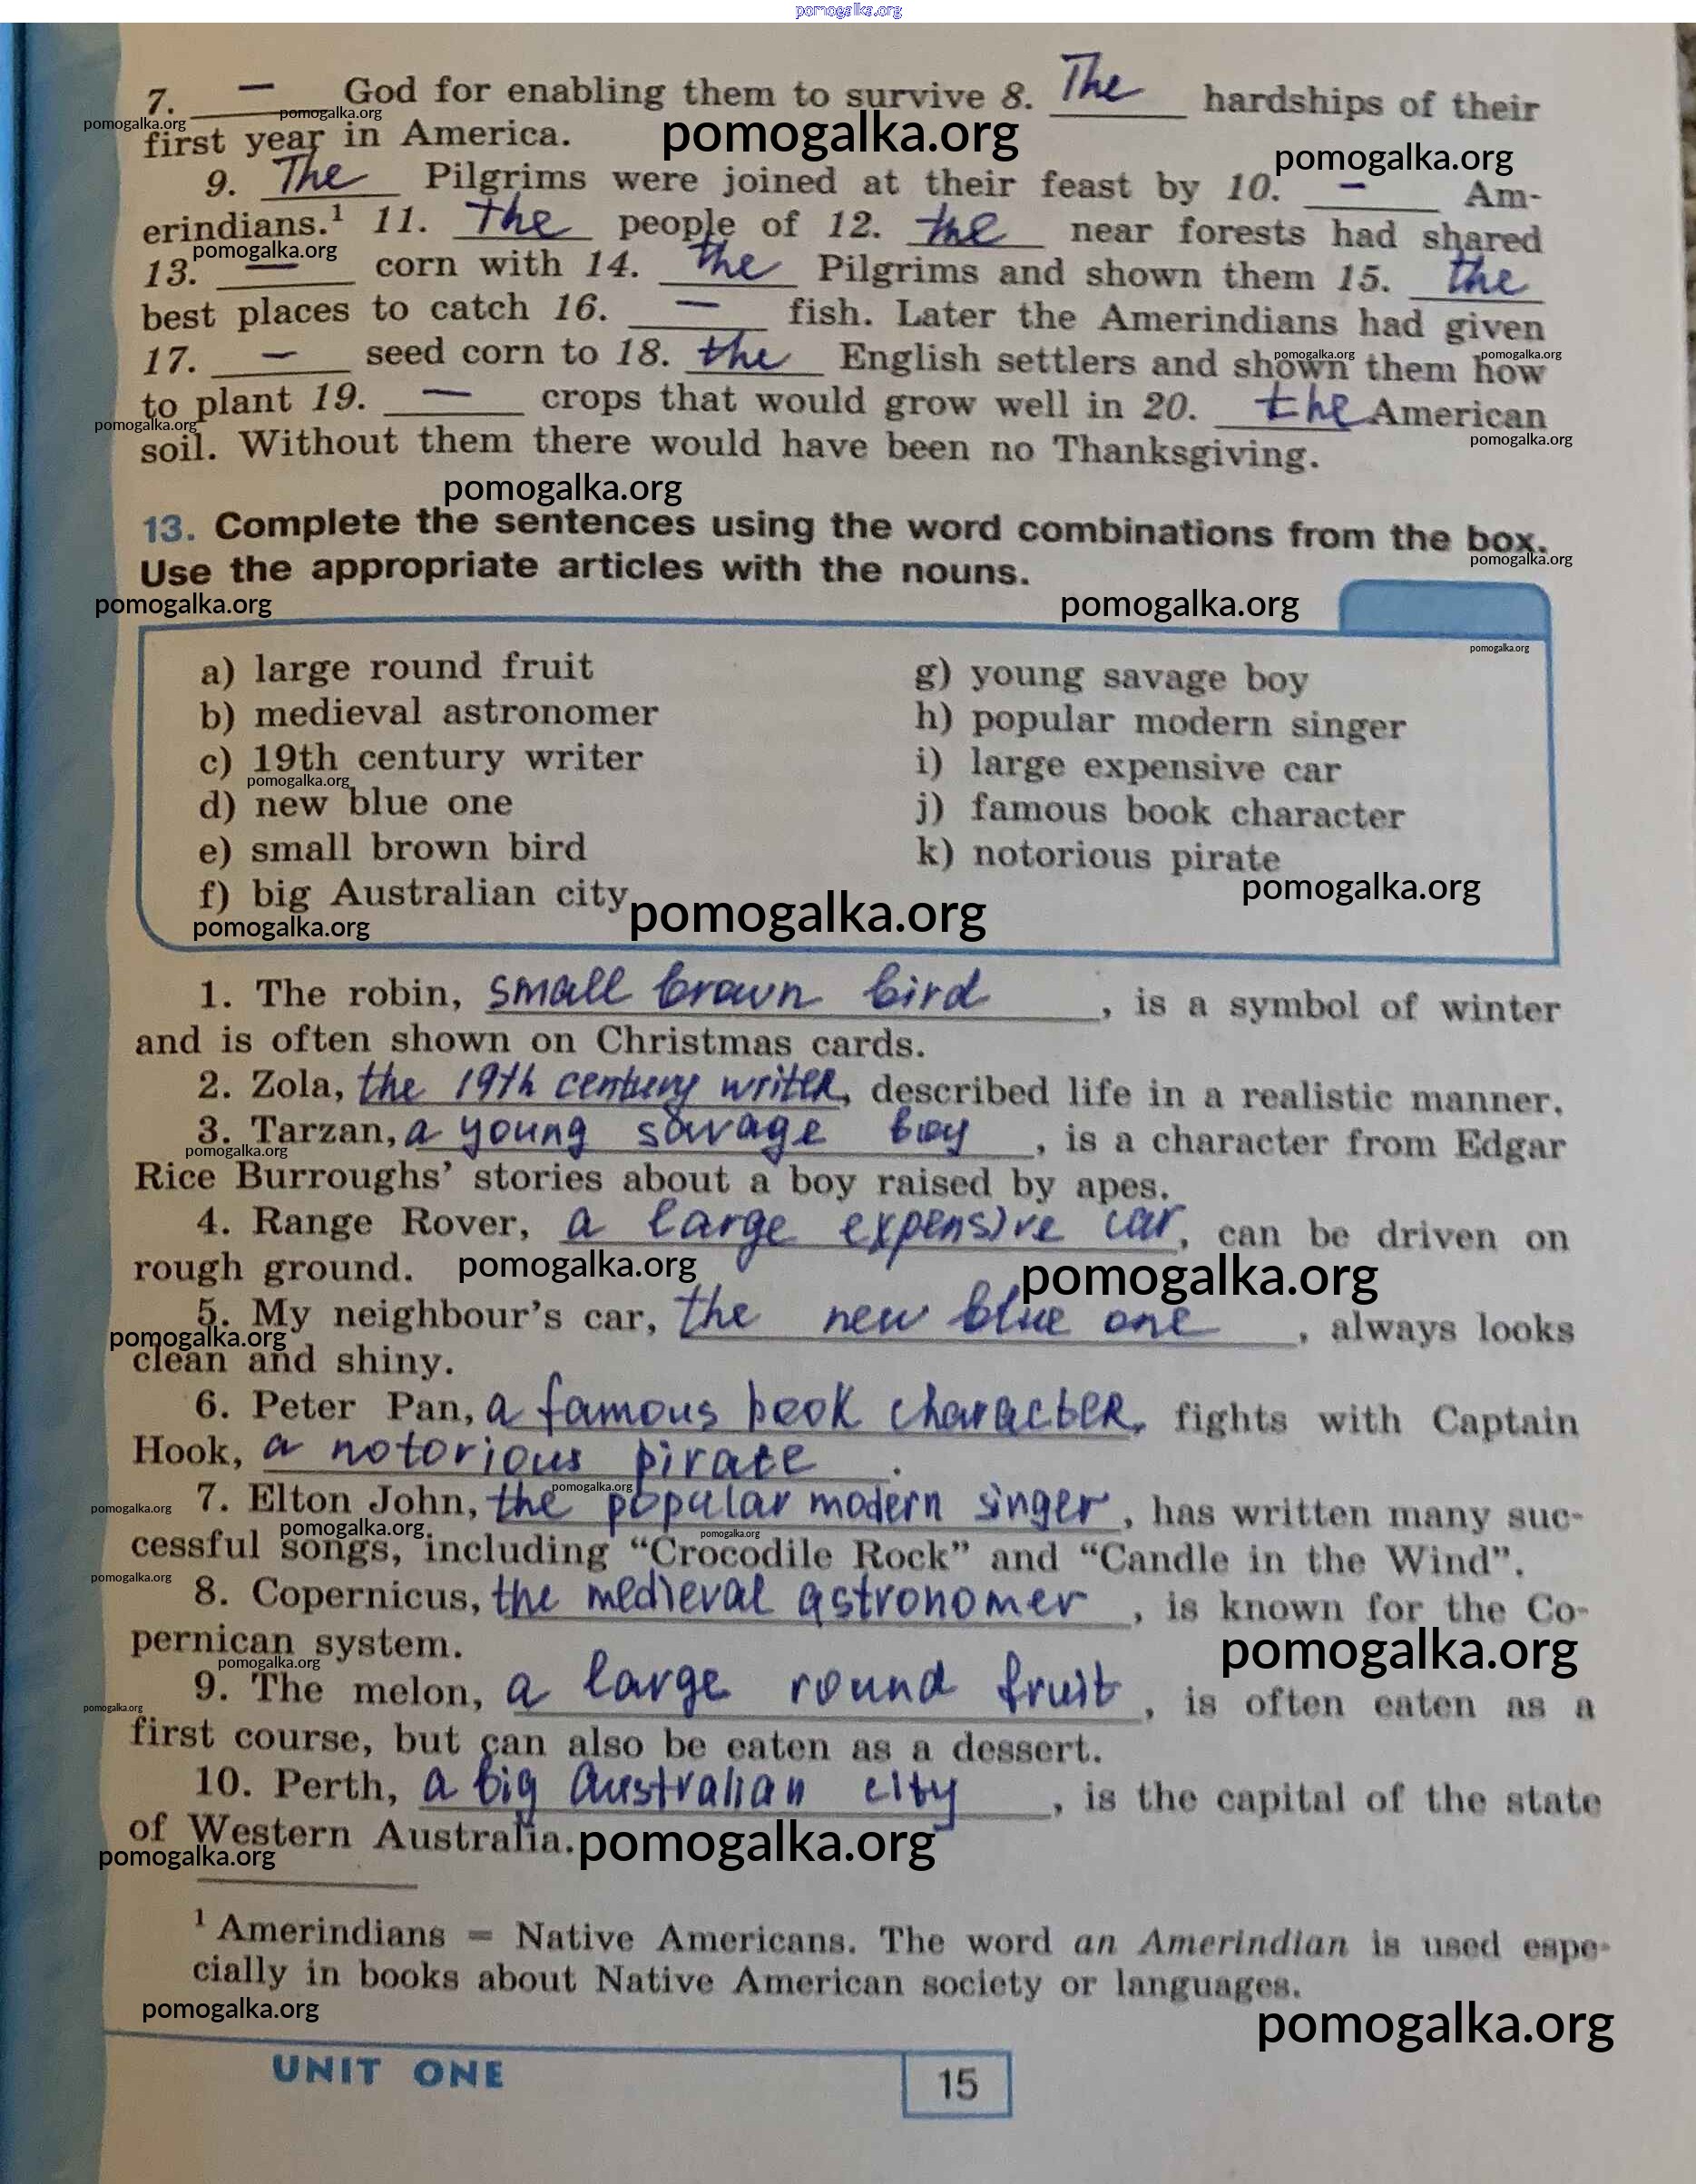 pomogalka.org
7. — God for enabling them to survive 8. The hardships of their
pomogalka.org pomogalka.org
first year in America. pomogalka.org
pomogalka.org
9. The Pilgrims were joined at their feast by 10. — Am-
erindians.¹ 11. the people of 12. the near forests had shared
pomogalka.org
13. — corn with 14. the Pilgrims and shown them 15. the
best places to catch 16. — fish. Later the Amerindians had given
17. — seed corn to 18. the English settlers and shown them how
pomogalka.org pomogalka.org
to plant 19. — crops that would grow well in 20. the American
pomogalka.org pomogalka.org
soil. Without them there would have been no Thanksgiving.
pomogalka.org
13. Complete the sentences using the word combinations from the box.
pomogalka.org
Use the appropriate articles with the nouns.
pomogalka.org pomogalka.org
pomogalka.org
a) large round fruit
b) medieval astronomer
c) 19th century writer
pomogalka.org
d) new blue one
e) small brown bird
f) big Australian city
g) young savage boy
h) popular modern singer
i) large expensive car
j) famous book character
k) notorious pirate
pomogalka.org
pomogalka.org pomogalka.org
1. The robin, small brown bird, is a symbol of winter
and is often shown on Christmas cards.
2. Zola, the 19th century writer, described life in a realistic manner.
3. Tarzan, a young savage boy, is a character from Edgar
pomogalka.org
Rice Burroughs' stories about a boy raised by apes.
4. Range Rover, a large expensive car, can be driven on
rough ground. pomogalka.org pomogalka.org
5. My neighbour's car, the new blue one, always looks
pomogalka.org
clean and shiny.
6. Peter Pan, a famous book character, fights with Captain
Hook, a notorious pirate.
pomogalka.org
7. Elton John, the popular modern singer, has written many suc-
pomogalka.org pomogalka.org pomogalka.org
cessful songs, including “Crocodile Rock” and “Candle in the Wind”.
pomogalka.org
8. Copernicus, the medieval astronomer, is known for the Co-
pernican system. pomogalka.org
pomogalka.org
9. The melon, a large round fruit, is often eaten as a
pomogalka.org
first course, but can also be eaten as a dessert.
10. Perth, a big Australian city, is the capital of the state
of Western Australia. pomogalka.org
pomogalka.org
¹ Amerindians = Native Americans. The word an Amerindian is used espe-
cially in books about Native American society or languages.
pomogalka.org pomogalka.org
UNIT ONE 15